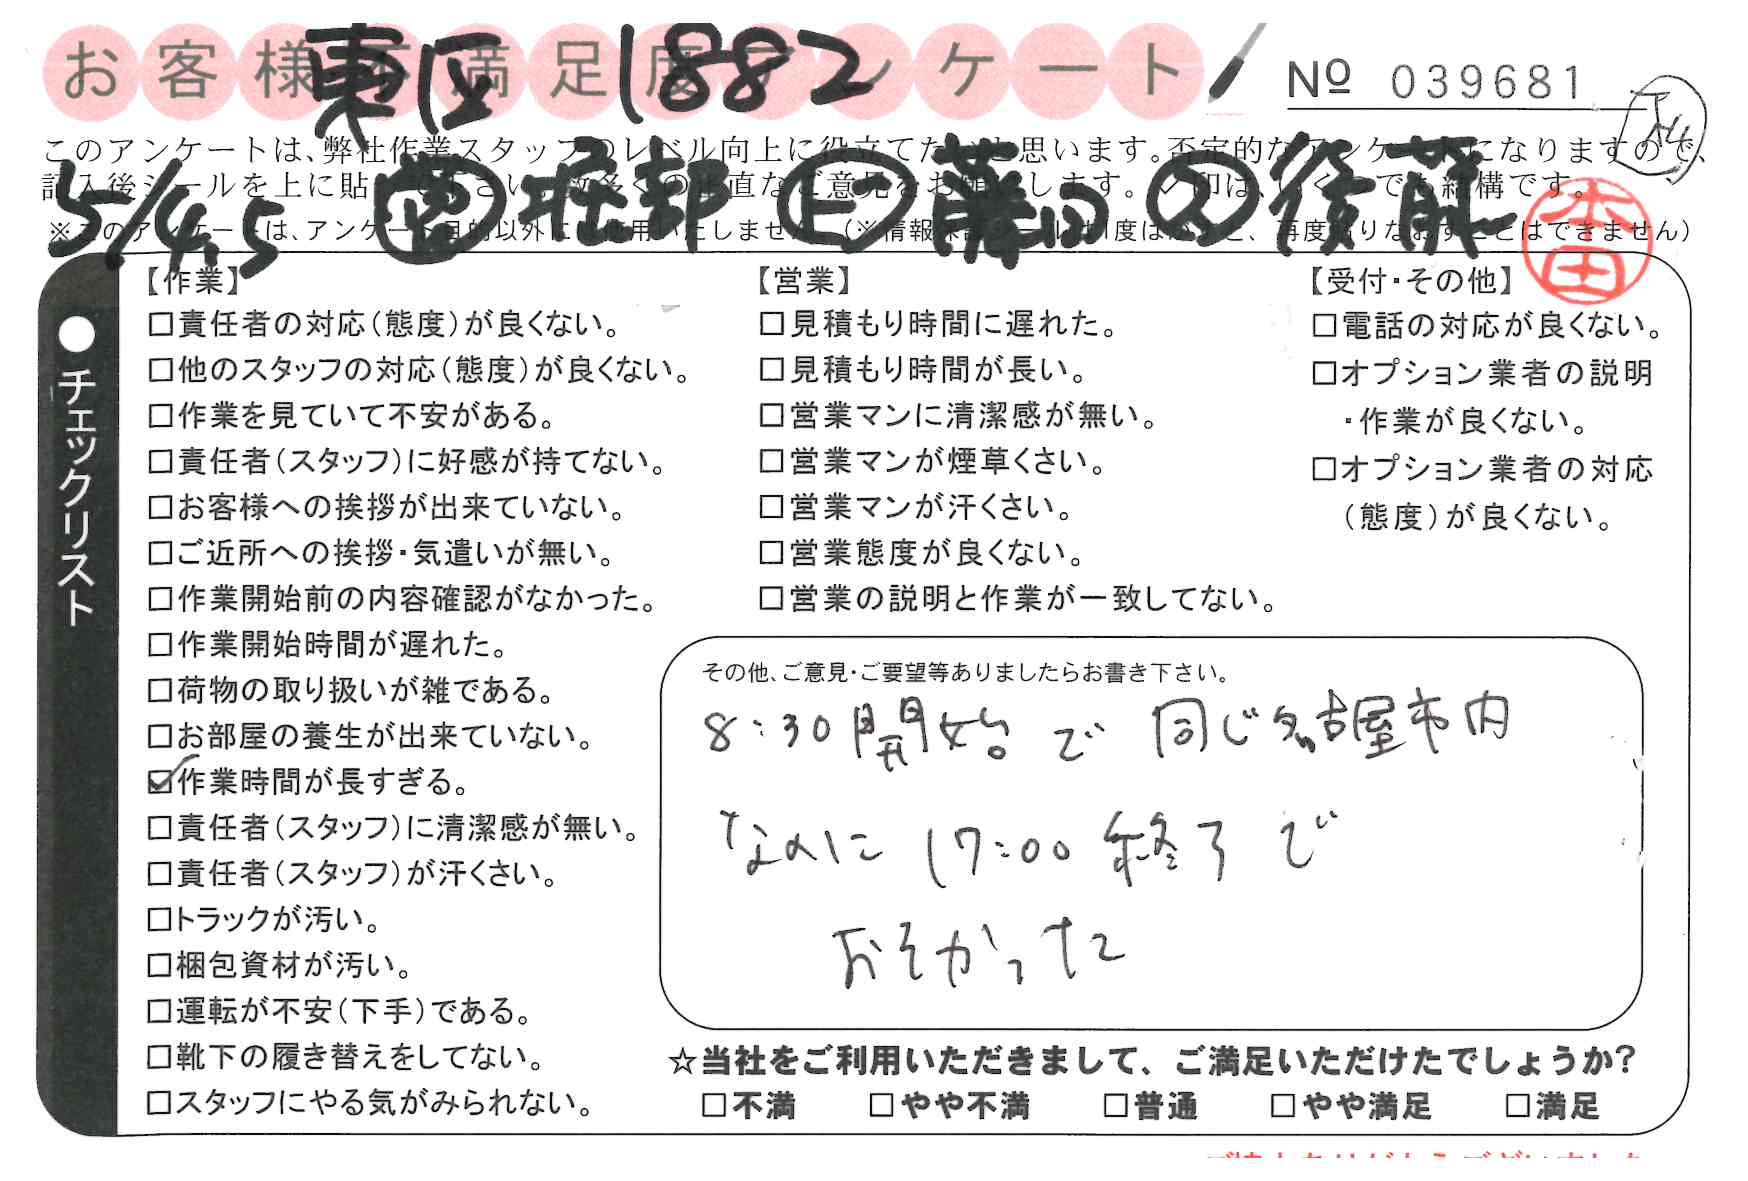 お客様不満足度アンケート
東区 1882
Nº 039681
このアンケートは、弊社作業スタッフのレベル向上に役立てたいと思います。否定的なアンケートになりますので、
記入後シールを上に貼って下さい。数多くの正直なご意見をお願いします。✓印は、いくつでも結構です。
5/4,5 営 荘部 E 藤田 ス 後藤
※このアンケートは、アンケート目的以外には使用いたしません。(※情報保護シールは1度はがすと、再度貼りなおすことはできません)
本田
●チェックリスト
【作業】
□責任者の対応(態度)が良くない。
□他のスタッフの対応(態度)が良くない。
□作業を見ていて不安がある。
□責任者(スタッフ)に好感が持てない。
□お客様への挨拶が出来ていない。
□ご近所への挨拶・気遣いが無い。
□作業開始前の内容確認がなかった。
□作業開始時間が遅れた。
□荷物の取り扱いが雑である。
□お部屋の養生が出来ていない。
☑作業時間が長すぎる。
□責任者(スタッフ)に清潔感が無い。
□責任者(スタッフ)が汗くさい。
□トラックが汚い。
□梱包資材が汚い。
□運転が不安(下手)である。
□靴下の履き替えをしてない。
□スタッフにやる気がみられない。
【営業】
□見積もり時間に遅れた。
□見積もり時間が長い。
□営業マンに清潔感が無い。
□営業マンが煙草くさい。
□営業マンが汗くさい。
□営業態度が良くない。
□営業の説明と作業が一致してない。
【受付・その他】
□電話の対応が良くない。
□オプション業者の説明
・作業が良くない。
□オプション業者の対応
(態度)が良くない。
その他、ご意見・ご要望等ありましたらお書き下さい。
8:30開始で同じ名古屋市内
なのに17:00終了で
おそかった
☆当社をご利用いただきまして、ご満足いただけたでしょうか?
□不満 □やや不満 □普通 □やや満足 □満足